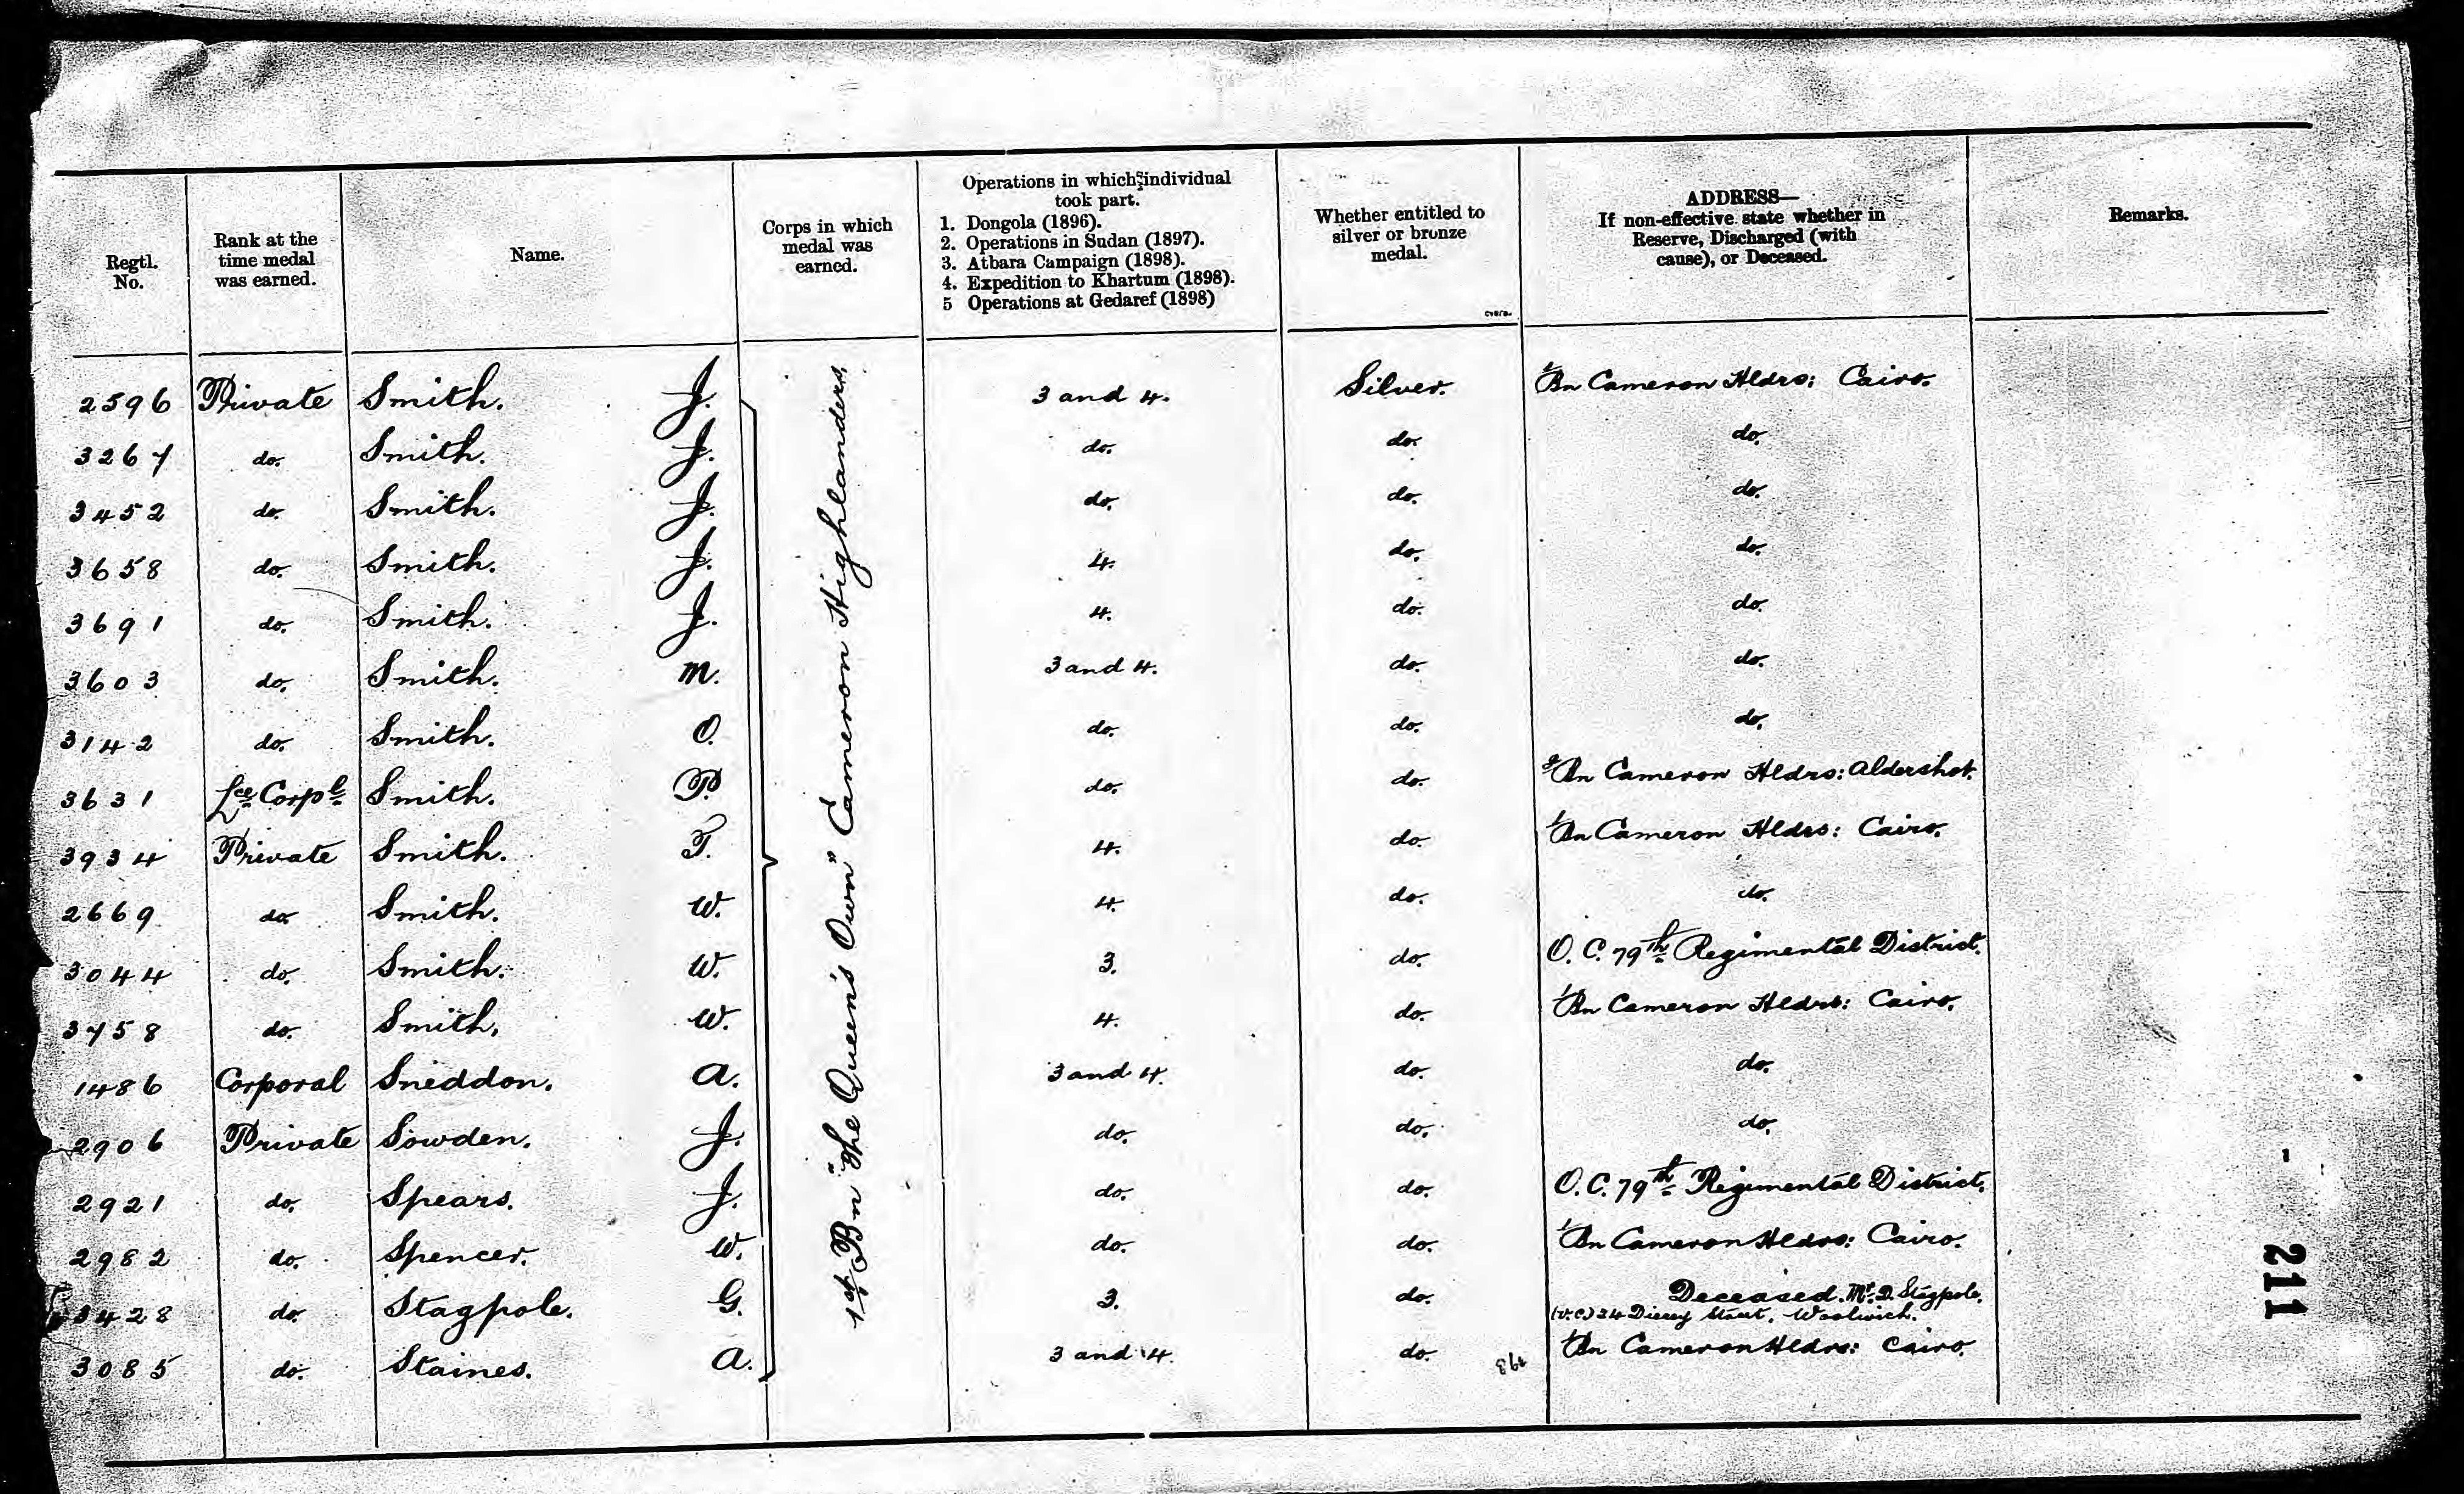 Regtl. No.
Rank at the time medal was earned.
Name.
Corps in which medal was earned.
Operations in which individual took part.
1. Dongola (1896).
2. Operations in Sudan (1897).
3. Atbara Campaign (1898).
4. Expedition to Khartum (1898).
5 Operations at Gedaref (1898)
Whether entitled to silver or bronze medal.
ADDRESS—
If non-effective state whether in Reserve, Discharged (with cause), or Deceased.
Remarks.
1st Bn "The Queen's Own" Cameron Highlanders.
2596 Private Smith. J. 3 and 4. Silver. 1/Bn Cameron Hldrs: Cairo.
3267 do. Smith. J. do. do. do.
3452 do. Smith. J. do. do. do.
3658 do. Smith. J. 4. do. do.
3691 do. Smith. J. 4. do. do.
3603 do. Smith. M. 3 and 4. do. do.
3142 do. Smith. O. do. do. do.
3631 Lce Corpl Smith. P. do. do. 2/Bn Cameron Hldrs: Aldershot.
3934 Private Smith. T. 4. do. 1/Bn Cameron Hldrs: Cairo.
2669 do. Smith. W. 4. do. do.
3044 do. Smith. W. 3. do. O.C. 79th Regimental District.
3758 do. Smith. W. 4. do. 1/Bn Cameron Hldrs: Cairo.
1486 Corporal Sneddon. A. 3 and 4. do. do.
2906 Private Sowden. J. do. do. do.
2921 do. Spears. J. do. do. O.C. 79th Regimental District.
2982 do. Spencer. W. do. do. 1/Bn Cameron Hldrs: Cairo.
3428 do. Stagpole. G. 3. do. Deceased. Mr. D. Stagpole.
(V.C.) 24 Street, Woolwich.
3085 do. Staines. A. 3 and 4. do. 1/Bn Cameron Hldrs: Cairo.
211